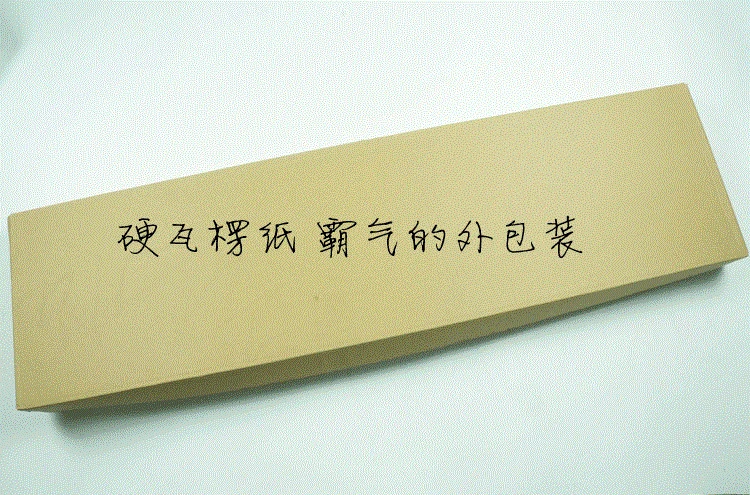 硬瓦楞纸 霸气的外包装